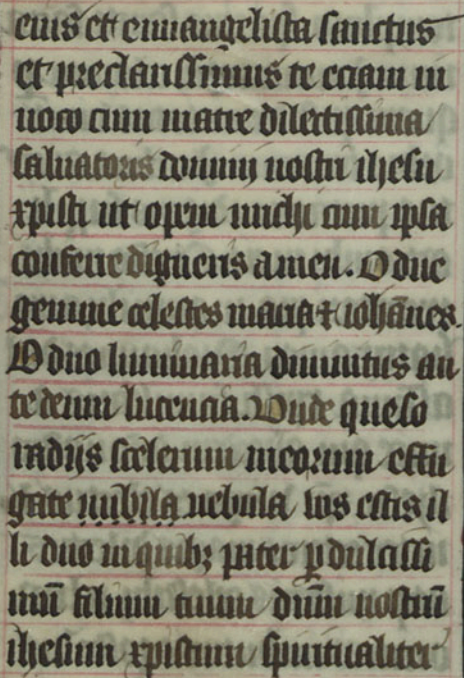 eius et euuangelista sanctus
et preclarissimus te eciam in
uoco cum matre dilectissima
saluatoris domini nostri ihesu
xpisti ut opem michi cum ipsa
conferre digneris amen. O due
gemme celestes maria ⁊ ioha̅nes.
O duo luminaria diuinitus an
te deum lucencia. Unde queso
radijs scelerum meorum effu
gate nubila nebula uos estis il
li duo in quibꝫ pater ꝑ dulcissi
mu̅ filium tuum dn̅m nostru̅
ihesum xpistum spiritualiter